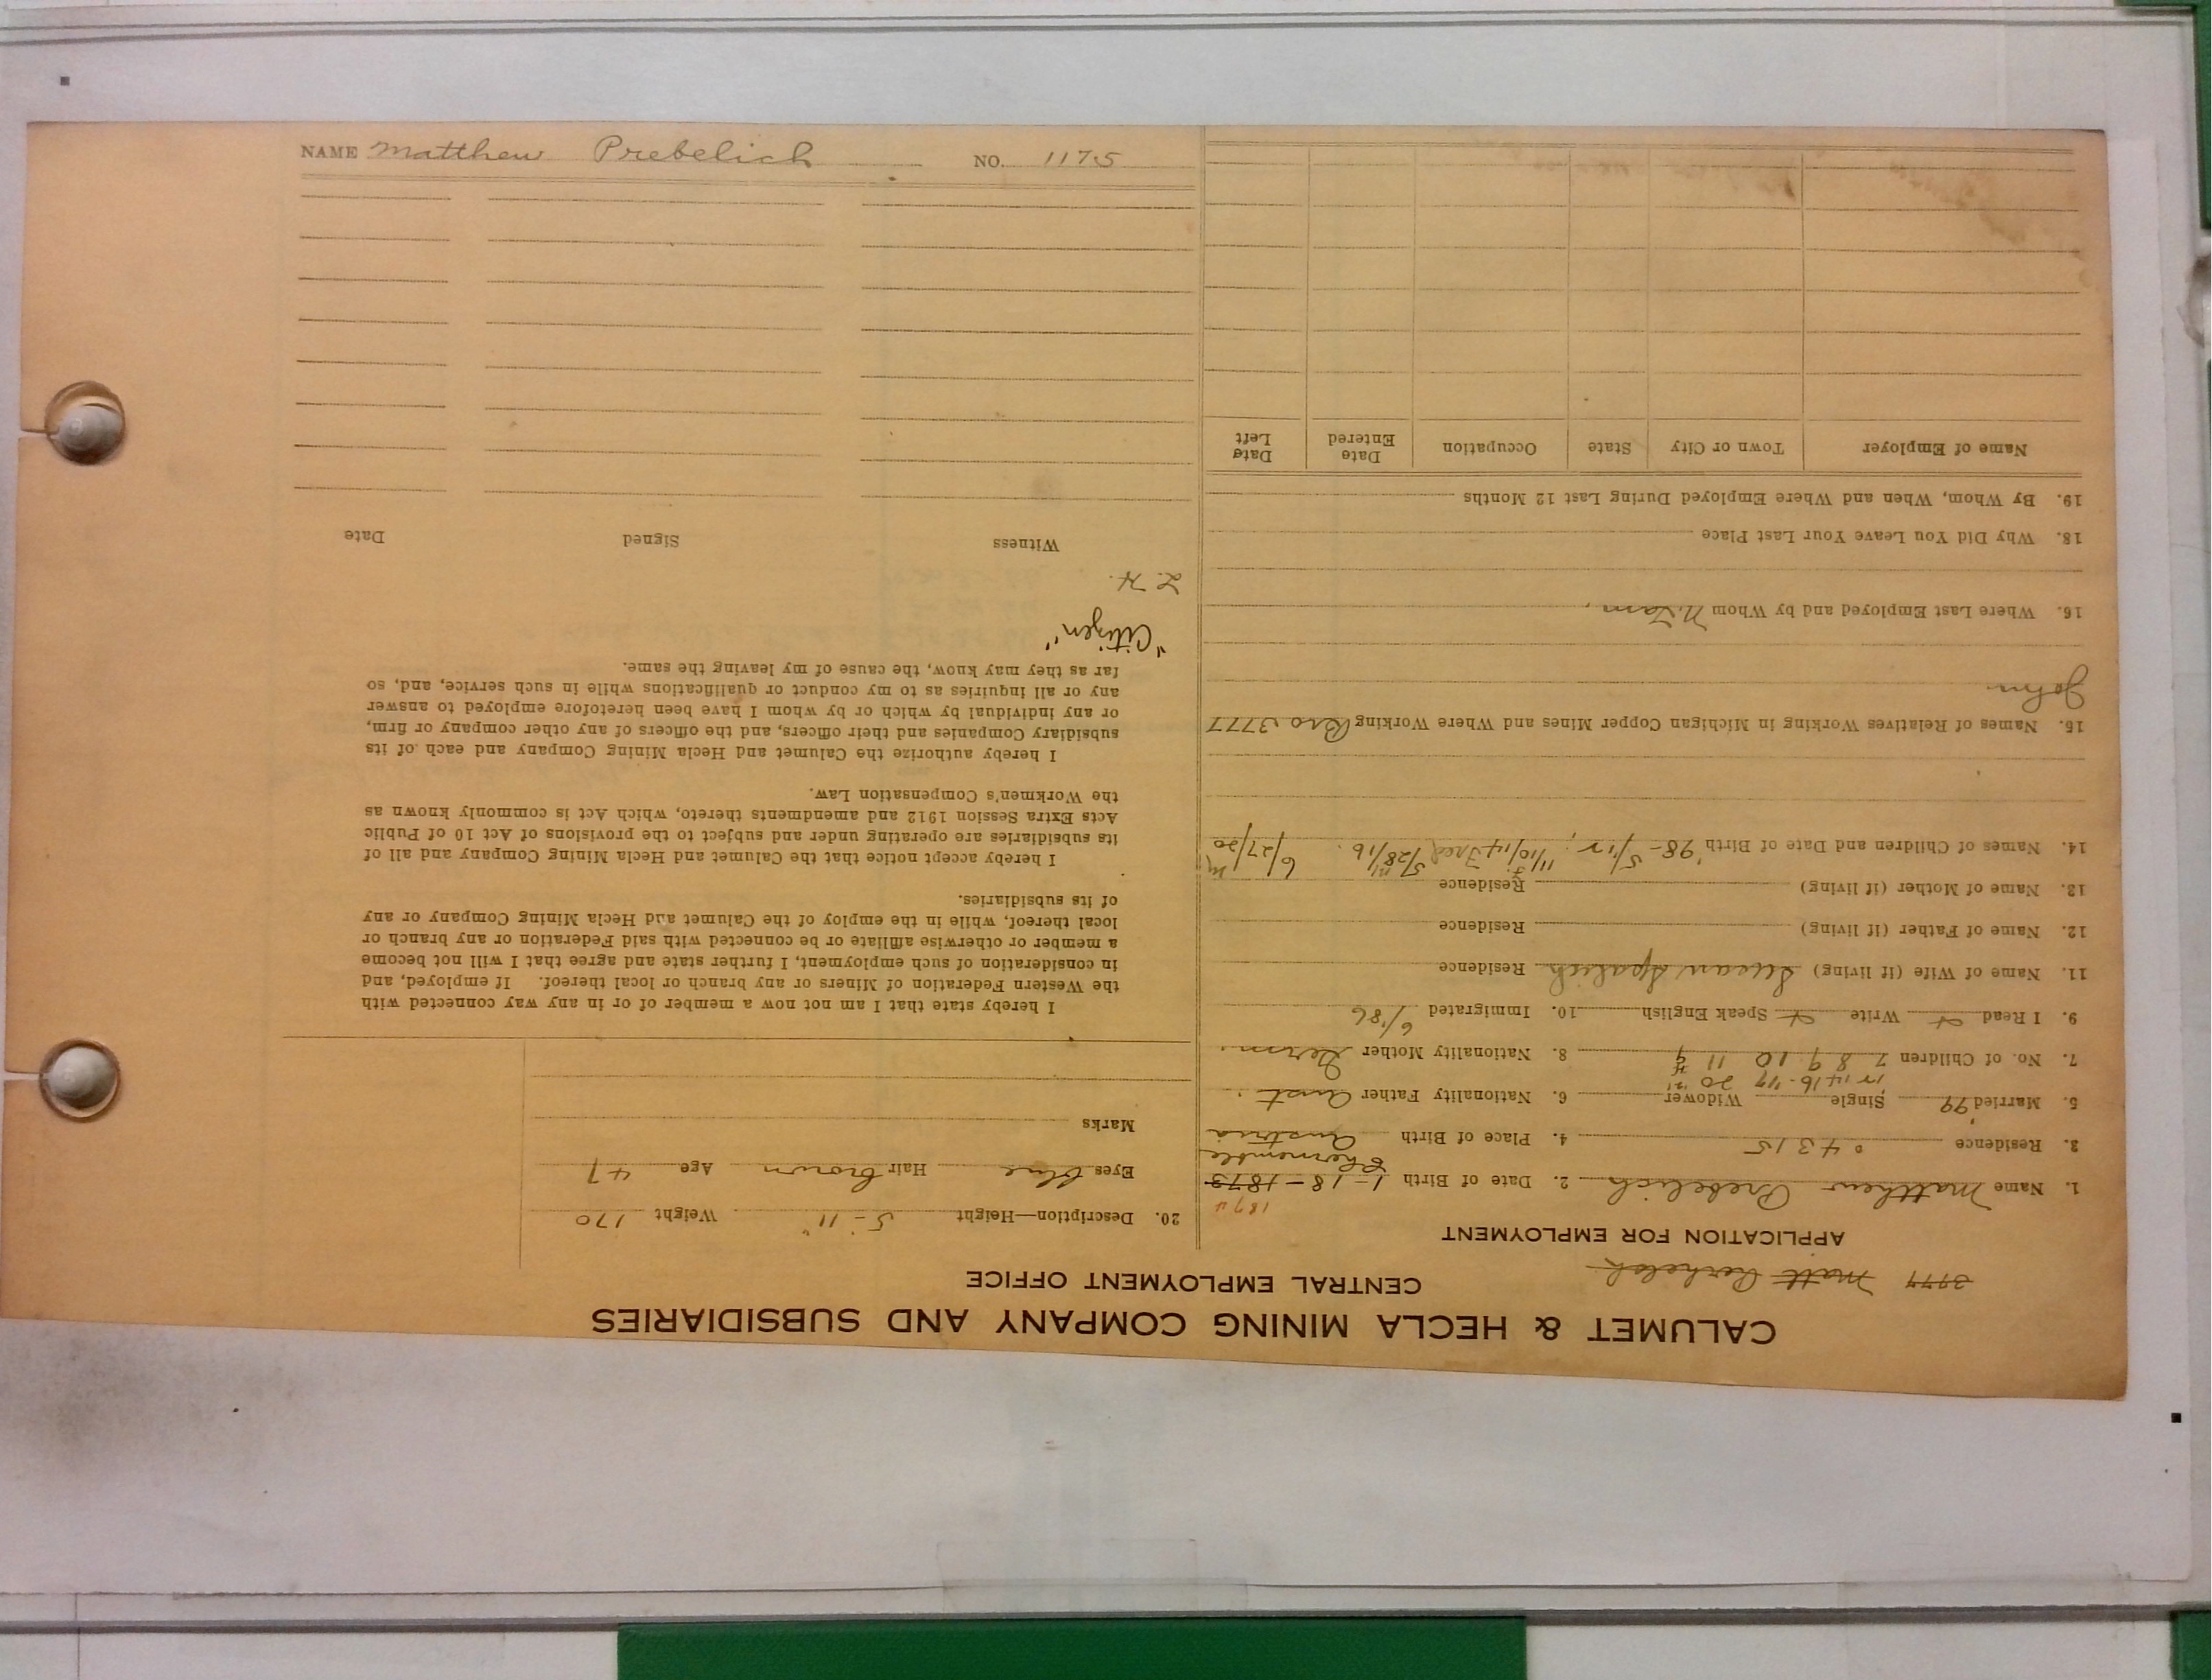 CALUMET & HECLA MINING COMPANY AND SUBSIDIARIES
CENTRAL EMPLOYMENT OFFICE
3977 Matt
APPLICATION FOR EMPLOYMENT
1874
1. Name Matthew Prebelich 2. Date of Birth 1-18-1873
3. Residence 04315 4. Place of Birth Austria
5. Married '99 Single Widower 6. Nationality Father Aust.
12 14 16 '17 20
7. No. of Children 7 8 9 10 11 8. Nationality Mother
9. I Read Write Speak English 10. Immigrated 6/86
11. Name of Wife (if living) Susan Spalich Residence
12. Name of Father (if living) Residence
13. Name of Mother (if living) Residence
14. Names of Children and Date of Birth '98- 5/12; 11/10/14 Fred 5/28/16. 6/27/20
15. Names of Relatives Working in Michigan Copper Mines and Where Working Bro 3777
John
16. Where Last Employed and by Whom
18. Why Did You Leave Your Last Place
19. By Whom, When and Where Employed During Last 12 Months
Name of Employer Town or City State Occupation Date Entered Date Left
20. Description—Height 5-11" Weight 170
Eyes blue Hair brown Age 47
Marks
I hereby state that I am not now a member of or in any way connected with
the Western Federation of Miners or any branch or local thereof. If employed, and
in consideration of such employment, I further state and agree that I will not become
a member or otherwise affiliate or be connected with said Federation or any branch or
local thereof, while in the employ of the Calumet and Hecla Mining Company or any
of its subsidiaries.
I hereby accept notice that the Calumet and Hecla Mining Company and all of
its subsidiaries are operating under and subject to the provisions of Act 10 of Public
Acts Extra Session 1912 and amendments thereto, which Act is commonly known as
the Workmen's Compensation Law.
I hereby authorize the Calumet and Hecla Mining Company and each of its
subsidiary Companies and their officers, and the officers of any other company or firm,
or any individual by which or by whom I have been heretofore employed to answer
any or all inquiries as to my conduct or qualifications while in such service, and, so
far as they may know, the cause of my leaving the same.
"Citizen"
L.H.
Witness Signed Date
NAME Matthew Prebelich NO. 1175